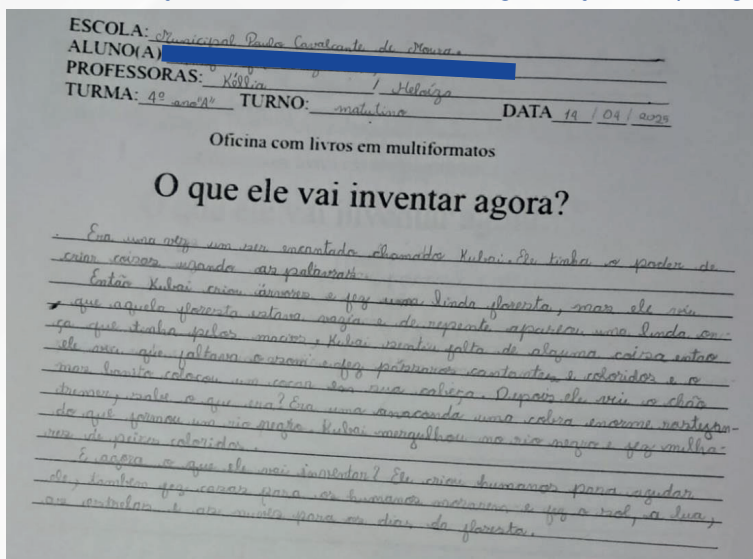 ESCOLA: Municipal Paulo Cavalcante de Moura.
ALUNO(A)
PROFESSORAS: Kéllia / Heloíza
TURMA: 4º ano "A" TURNO: matutino DATA 14 / 04 / 2025
Oficina com livros em multiformatos
O que ele vai inventar agora?
Era uma vez um ser encantado chamado Kubai. Ele tinha o poder de
criar coisas usando as palavras.
Então Kubai criou árvores e fez uma linda floresta, mas ele viu
que aquela floresta estava vazia e de repente apareceu uma linda on-
ça que tinha pelos macios, Kubai sentiu falta de alguma coisa então
ele viu que faltava o som e fez pássaros cantantes e coloridos e o
mas bonito colocou um cocar em sua cabeça. Depois ele viu o chão
tremer, sabe o que era? Era uma anaconda uma cobra enorme rastejan-
do que formou um rio negro. Kubai mergulhou no rio negro e fez milha-
res de peixes coloridos.
E agora o que ele vai inventar? Ele criou humanos para ajudar
ele, tambem fez casas para os humanos morarem e fez o sol, a lua,
as estrelas e as nuvens para os dias da floresta.